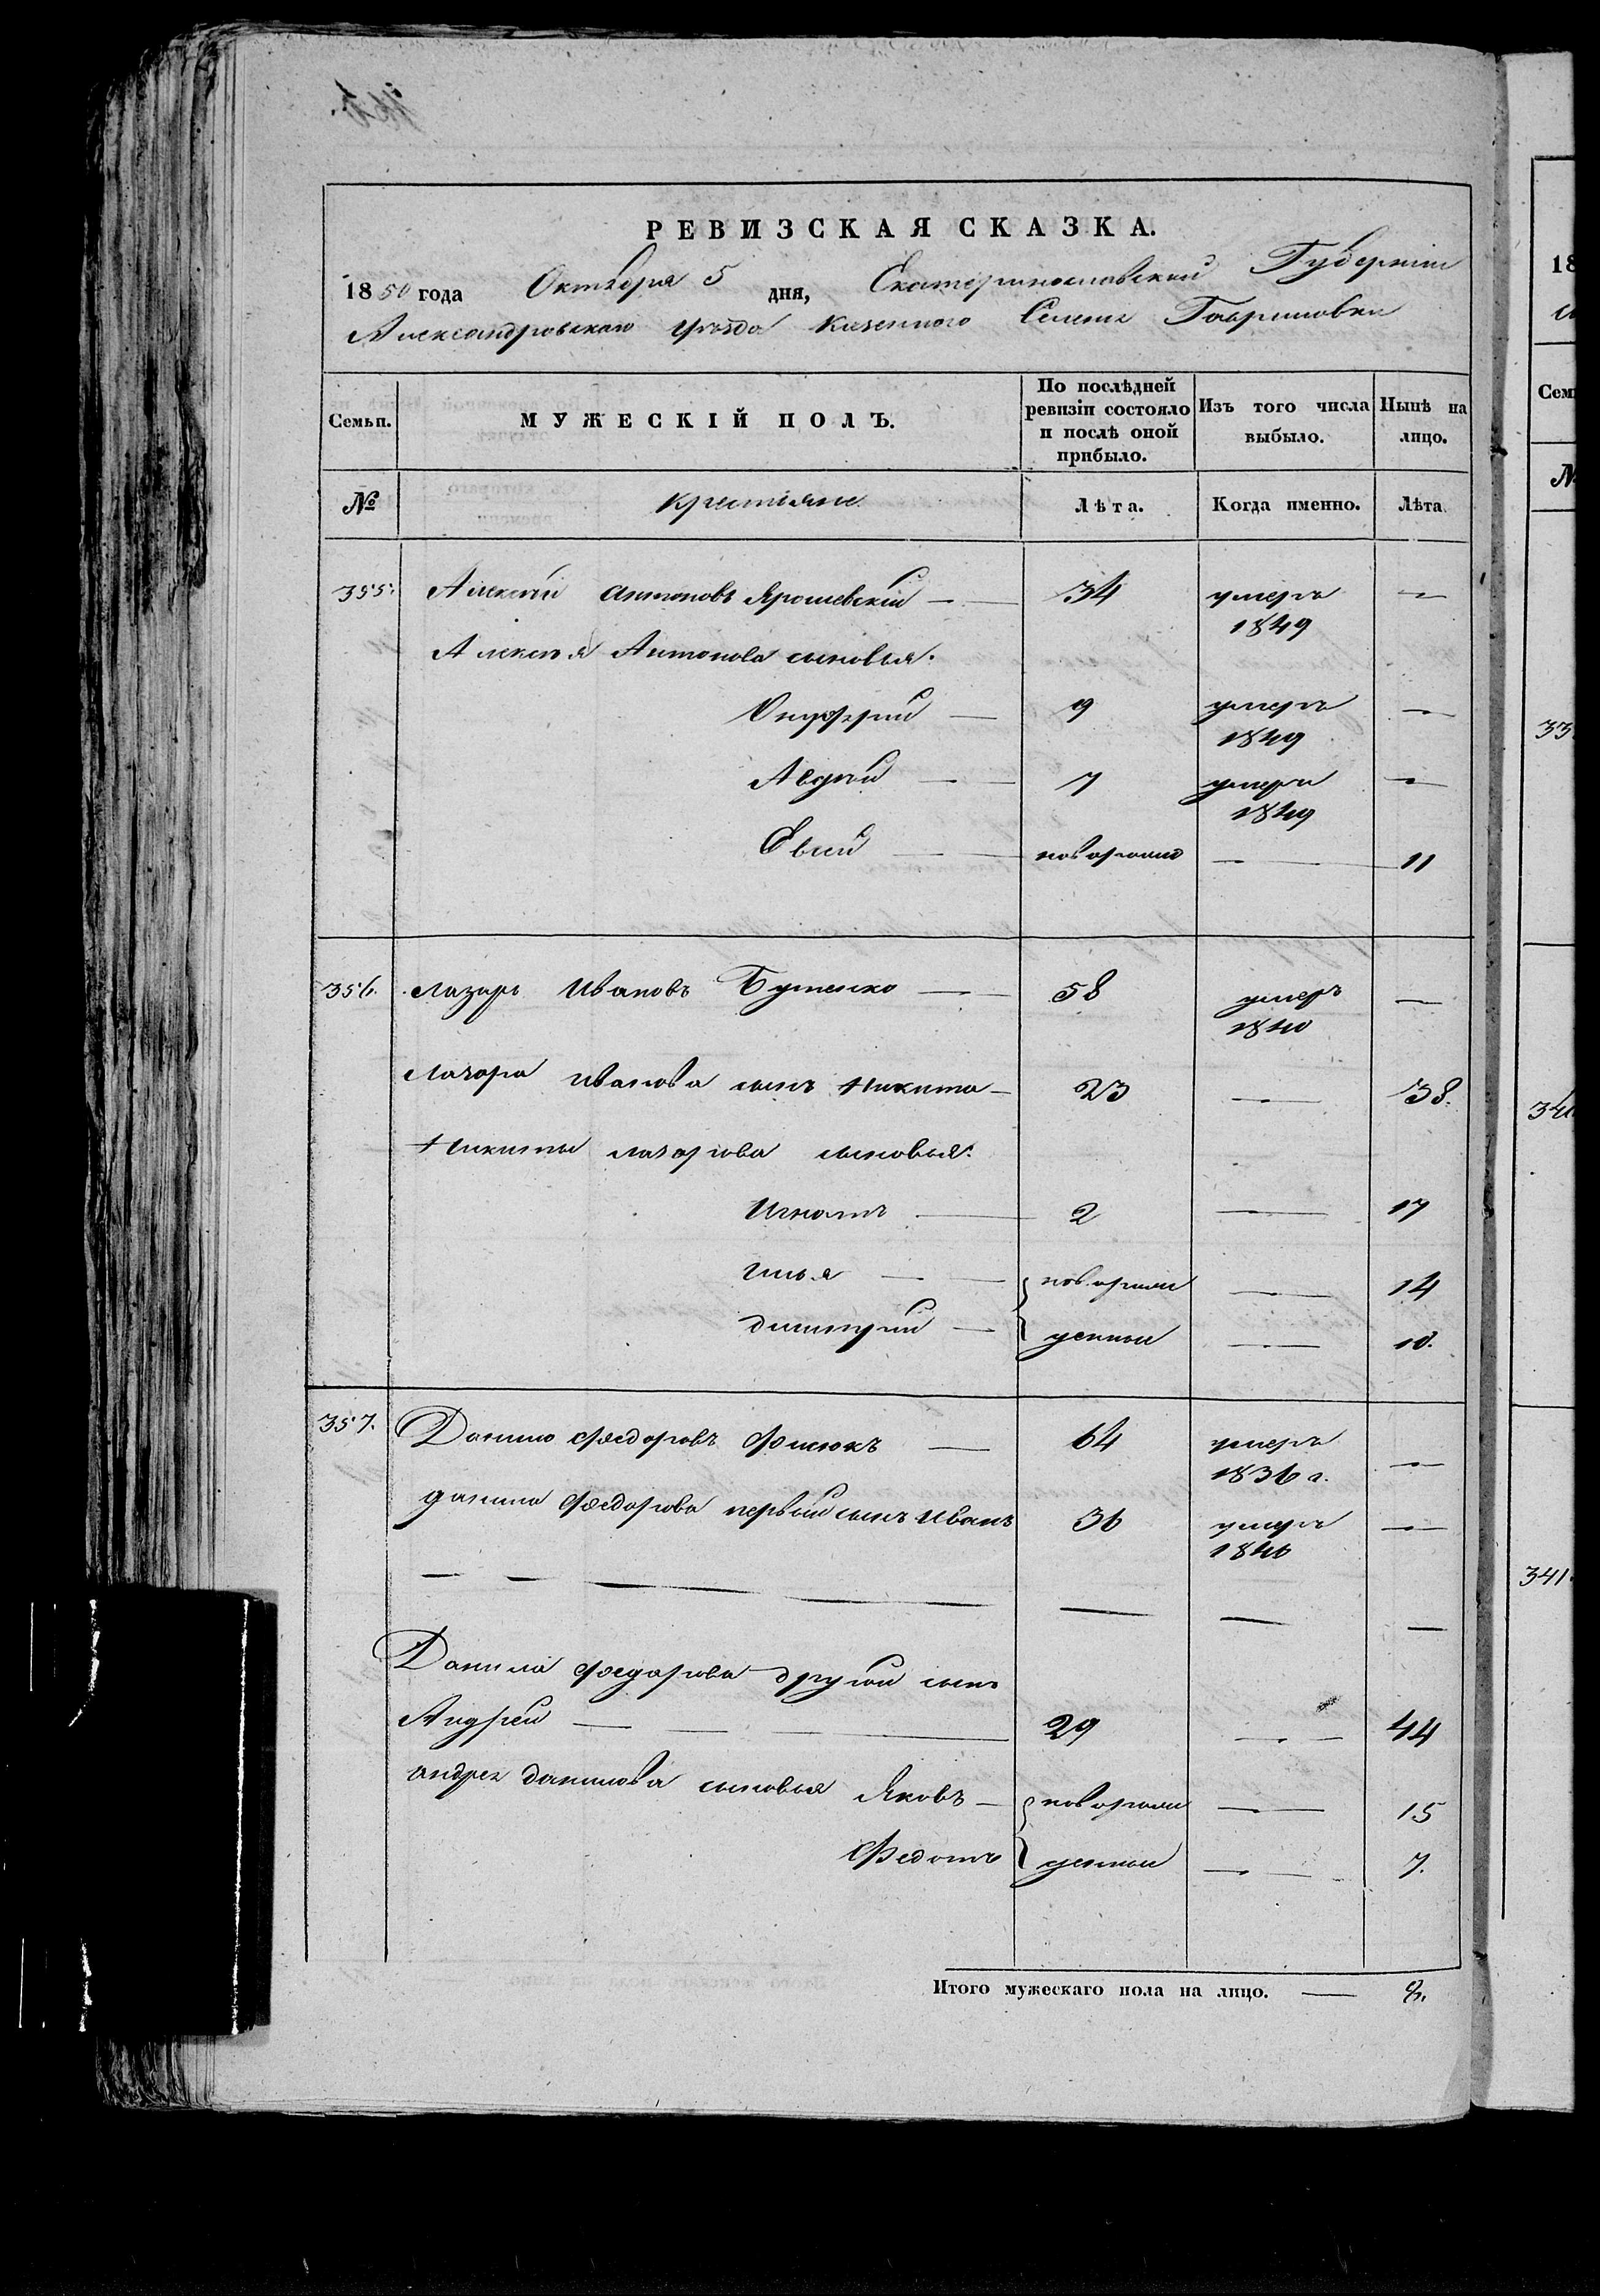 РЕВИЗСКАЯ СКАЗКА.
1850 года Октября 5 дня, Екатеринославской Губернии
Александровского уезда казенного Селения Гавриловки
Семьи. МУЖЕСКІЙ ПОЛЪ. По послѣдней ревизіи состояло и послѣ оной прибыло. Изъ того числа выбыло. Нынѣ на лицо.
№ крестьяне. Лѣта. Когда именно. Лѣта
355. Алексѣй Антоновъ Ярошевскій — 34 умеръ 1849 —
Алексѣя Антонова сыновья.
Онуфрий — 9 умеръ 1849 —
Авдѣй — 7 умеръ 1849 —
Евсей — новорожд — 11
356. Лазарь Ивановъ Бутенко — 58 умеръ 1840 —
Лазаря Иванова сынъ Никита — 23 — 38.
Никиты Лазарева сыновья.
Игнатъ — 2 — 17
Илья — новорож — 14
Димитрий — денные — 10.
357. Данило Федоровъ Фисюкъ — 64 умеръ 1836 г. —
Данила Федорова первый сынъ Иванъ 36 умеръ 1846 —
— — — — — — — —
Данила Федорова другой сынъ
Андрей — 29 — 44
Андрея Данилова сыновья Яковъ — новорож — 15
Федотъ денные — 7.
Итого мужескаго пола на лицо. — 8.
18
Сем
№
33
340
341.